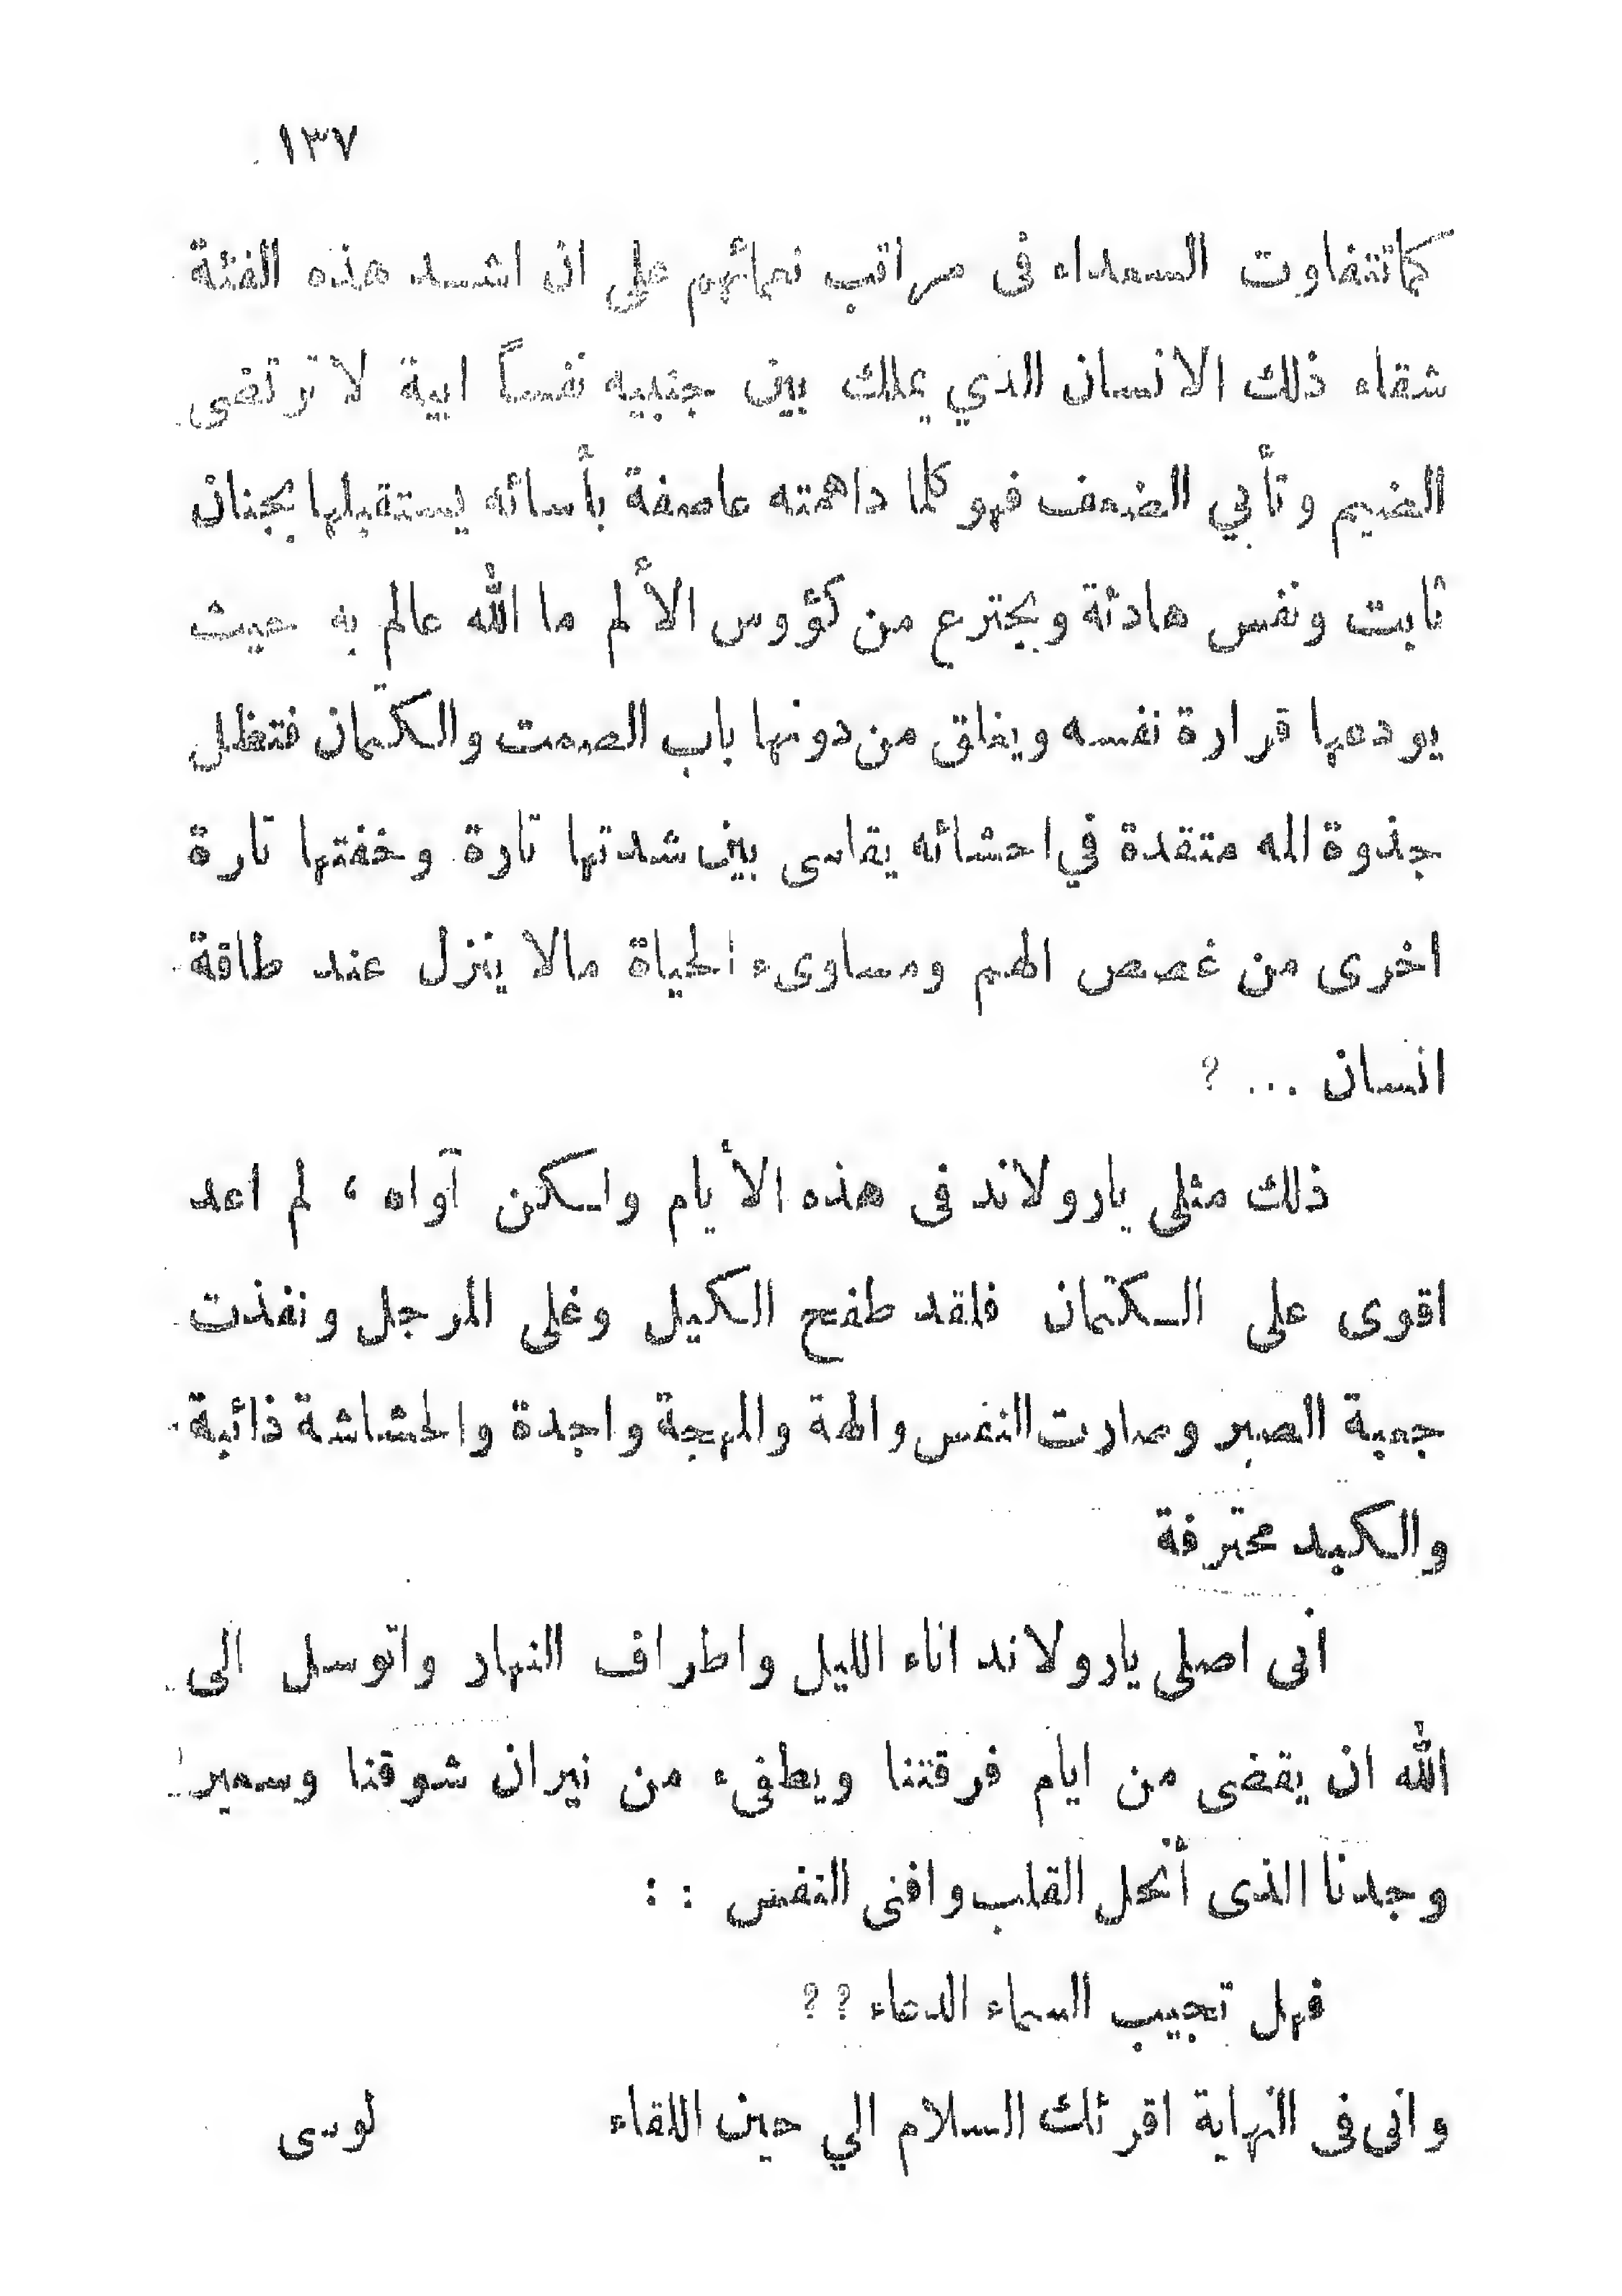 ١٣٧
كما تتفاوت السعداء فى مراتب نعمائهم على ان اشد هذه الفئة
شقاء ذلك الانسان الذي يملك بين جنبيه نفساً ابية لا ترتضى
الضيم وتأبي الضعف فهو كلما داهمته عاصفة بأسائه يستقبلها بجنان
ثابت ونفس هادئة ويجترع من كؤوس الألم ما الله عالم به حيث
يودعها قرارة نفسه ويغلق من دونها باب الصمت والكتمان فتظل
جذوة المه متقدة في احشائه يقاسى بين شدتها تارة وخفتها تارة
اخرى من غصص الهم ومساوىء الحياة مالا ينزل عند طاقة
انسان ... ?
ذلك مثلى يارولاند فى هذه الأيام ولكن آواه ، لم اعد
اقوى على الكتمان فلقد طفح الكيل وغلى المرجل ونفذت
جعبة الصبر وصارت النفس والهة والمهجة واجدة والحشاشة ذائبة
والكبد محترفة
أنى اصلى يارولاند اناء الليل واطراف النهار واتوسل الى
الله ان يقضى من ايام فرقتنا ويطفىء من نيران شوقنا وسعير
وجدنا الذى أنحل القلب وافنى النفس : :
فهل تجيب السماء الدعاء ? ?
وانى فى النهاية اقرئك السلام الي حين اللقاء لوسى